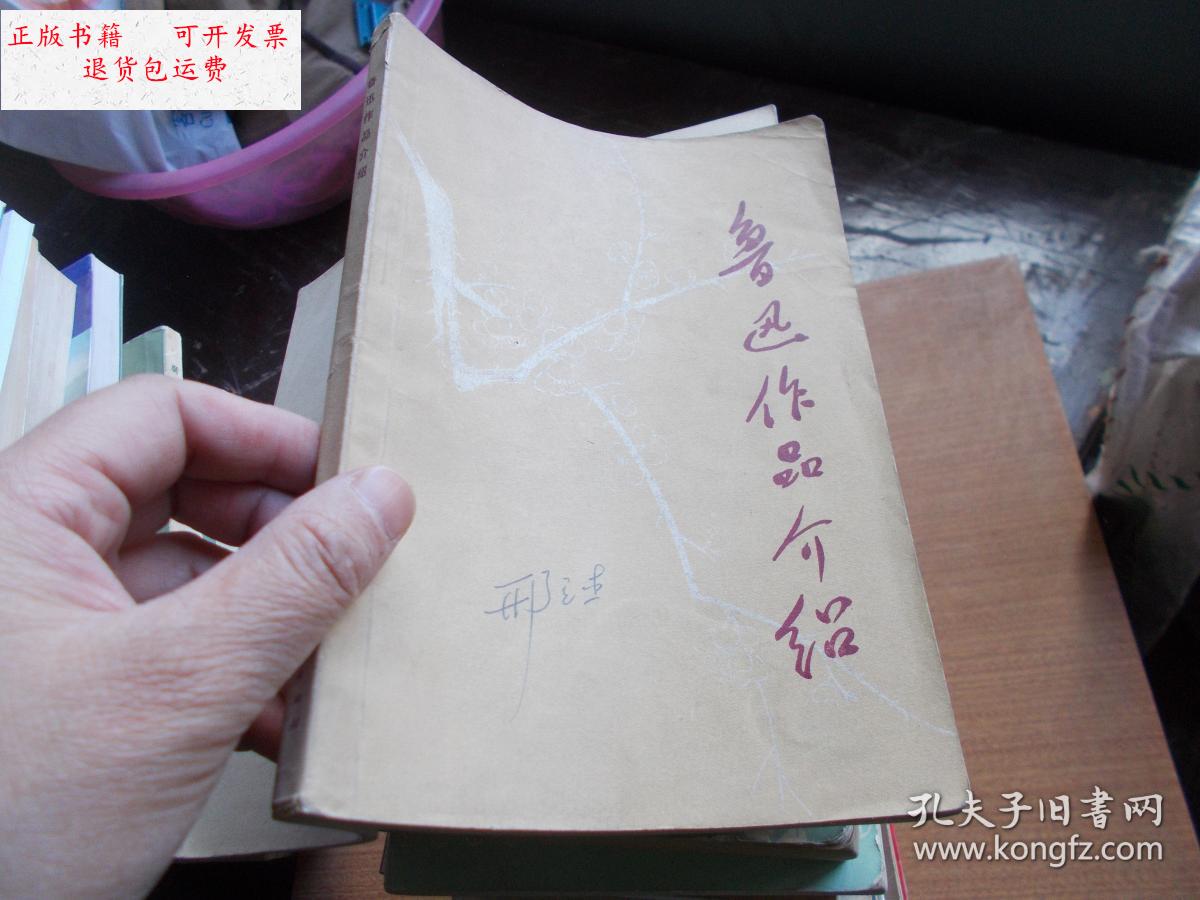 正版书籍 可开发票
退货包运费
鲁迅作品介绍
鲁迅作品介绍
孔夫子旧書网
www.kongfz.com